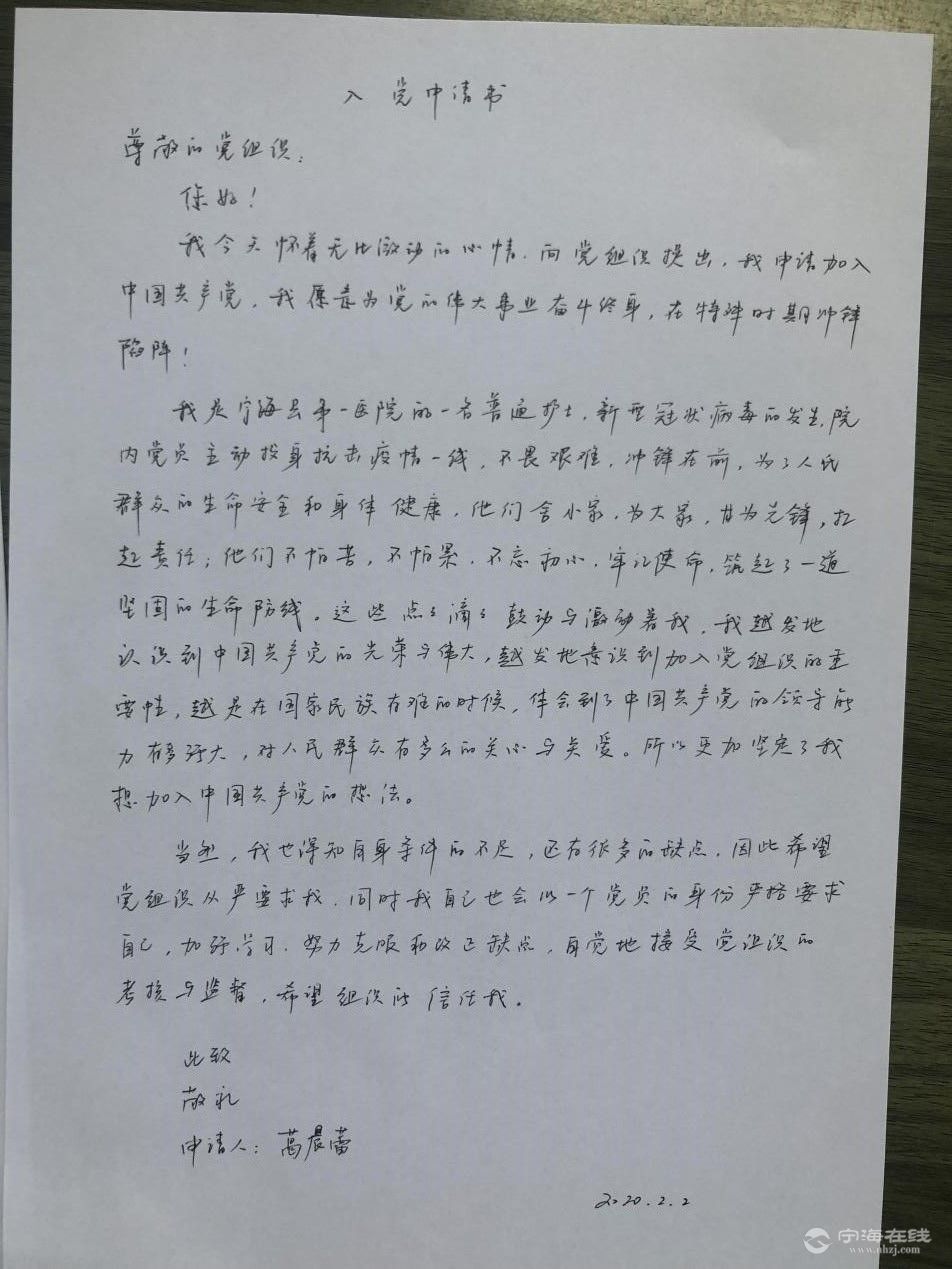 入党申请书
尊敬的党组织：
你好！
我今天怀着无比激动的心情，向党组织提出，我申请加入
中国共产党，我愿意为党的伟大事业奋斗终身，在特殊时期冲锋
陷阵！
我是宁海县第一医院的一名普通护士，新型冠状病毒的发生，院
内党员主动投身抗击疫情一线，不畏艰难，冲锋在前，为了人民
群众的生命安全和身体健康，他们舍小家，为大家，甘为先锋，扛
起责任；他们不怕苦，不怕累，不忘初心，牢记使命，筑起了一道
坚固的生命防线。这些点点滴滴鼓动与激动着我，我越发地
认识到中国共产党的光荣与伟大，越发地意识到加入党组织的重
要性，越是在国家民族有难的时候，体会到了中国共产党的领导能
力有多强大，对人民群众有多么的关心与关爱。所以更加坚定了我
想加入中国共产党的想法。
当然，我也得知自身条件的不足，还有很多的缺点，因此希望
党组织从严要求我，同时我自己也会以一个党员的身份严格要求
自己，加强学习，努力克服和改正缺点，自觉地接受党组织的
考核与监督，希望组织能信任我。
此致
敬礼
申请人：葛晨蕾
2020.2.2
宁海在线
www.nhzj.com